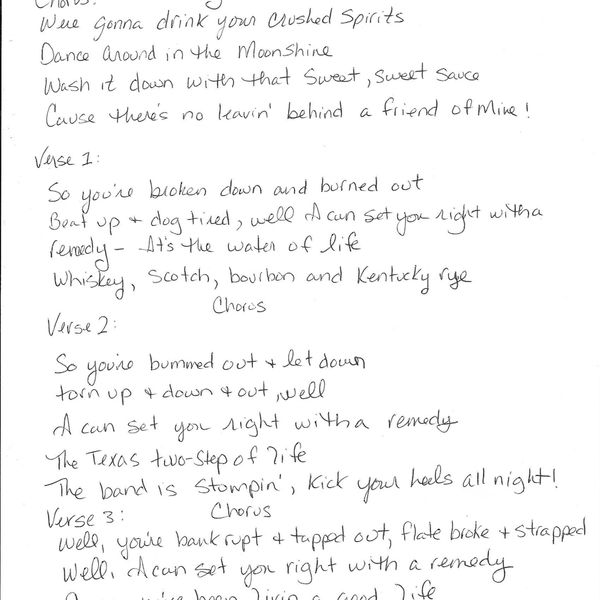 Chorus:
We're gonna drink your Crushed Spirits
Dance around in the Moonshine
Wash it down with that Sweet, Sweet Sauce
Cause there's no leavin' behind a friend of Mine!
Verse 1:
So you're broken down and burned out
Beat up + dog tired, well I can set you right with a
remedy - It's the water of life
Whiskey, Scotch, bourbon and Kentucky rye
Chorus
Verse 2:
So you're bummed out + let down
torn up + down + out, well
I can set you right with a remedy
The Texas two-step of life
The band is Stompin', Kick your heels all night!
Chorus
Verse 3:
Well, you're bankrupt + tapped out, flate broke + strapped
Well, I can set you right with a remedy
livin a good life